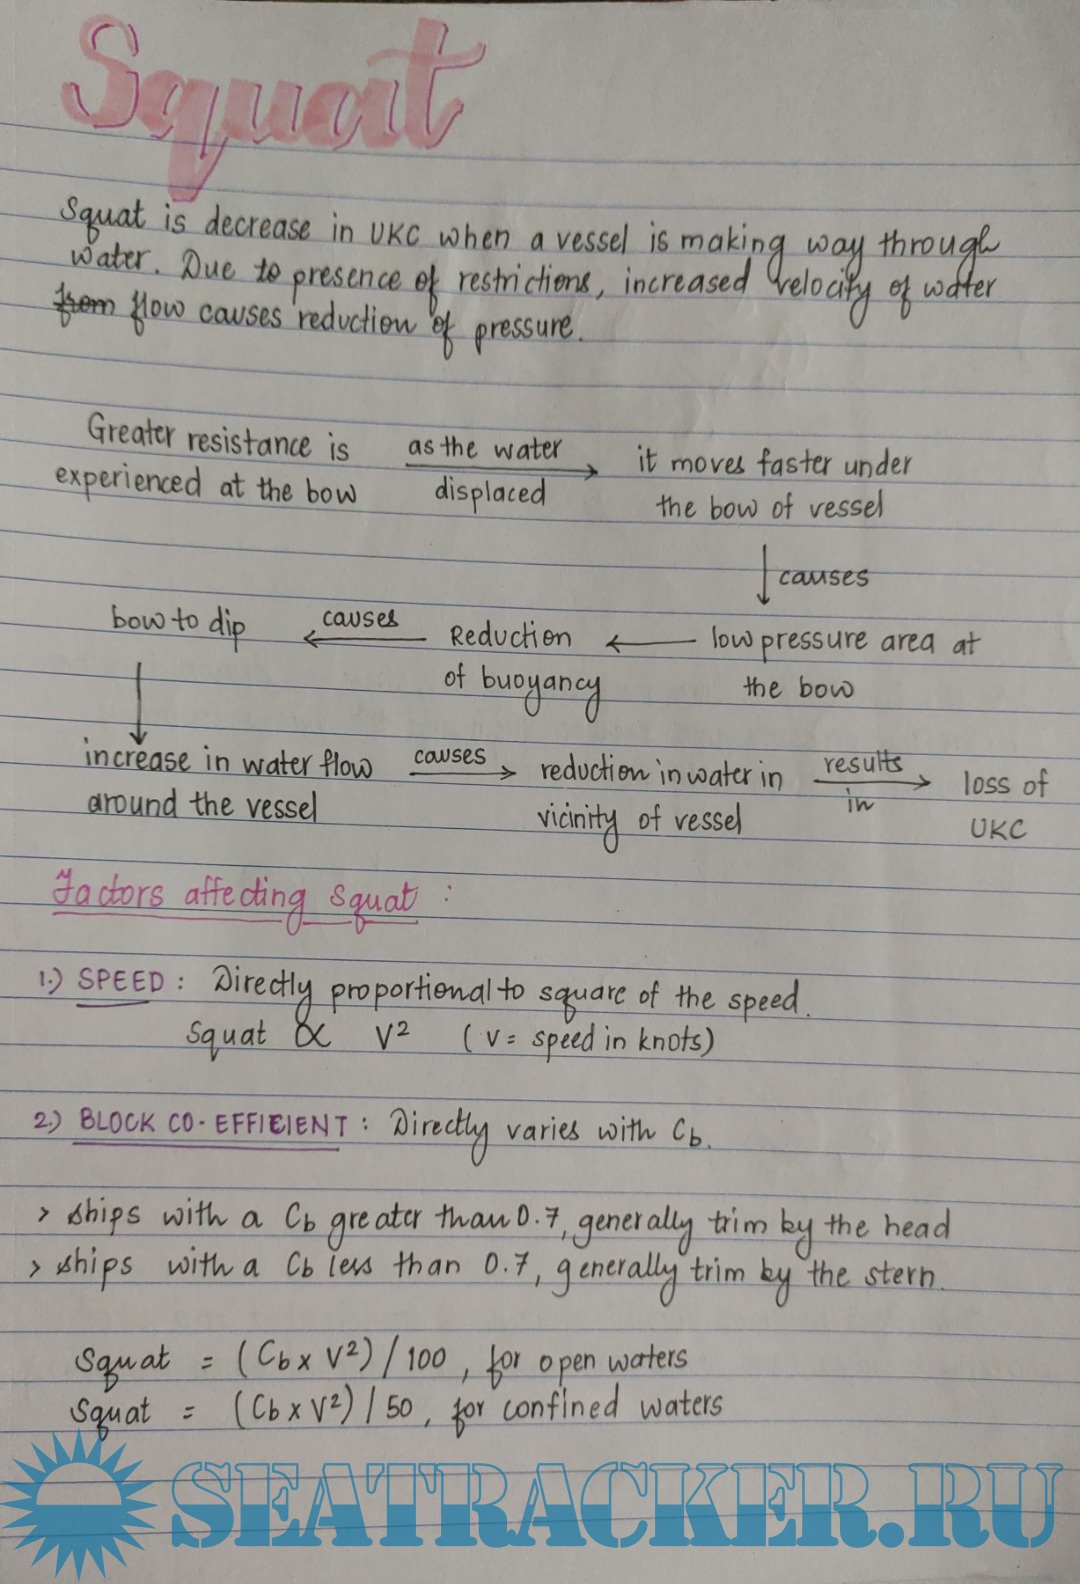 Squat
Squat is decrease in UKC when a vessel is making way through
water. Due to presence of restrictions, increased velocity of water
from flow causes reduction of pressure.
Greater resistance is as the water it moves faster under
experienced at the bow displaced the bow of vessel
causes
bow to dip causes Reduction low pressure area at
of buoyancy the bow
increase in water flow causes reduction in water in results loss of
around the vessel vicinity of vessel in UKC
Factors affecting squat :
1.) SPEED : Directly proportional to square of the speed.
Squat ∝ V² ( V = speed in knots)
2.) BLOCK CO-EFFICIENT : Directly varies with Cb.
> ships with a Cb greater than 0.7, generally trim by the head
> ships with a Cb less than 0.7, generally trim by the stern.
Squat = (Cb x V²) / 100 , for open waters
Squat = (Cb x V²) / 50 , for confined waters
SEATRACKER.RU